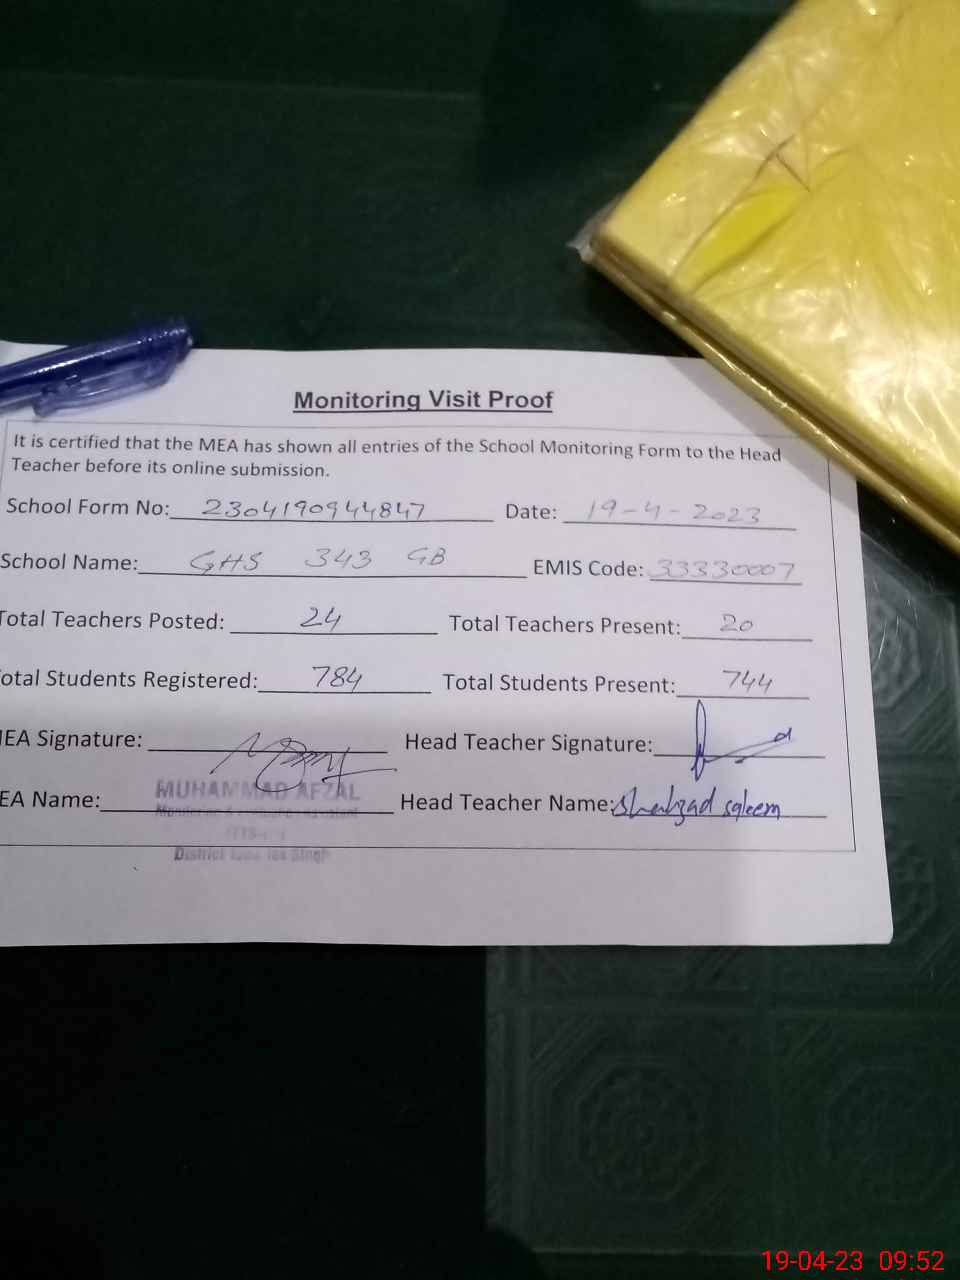 Monitoring Visit Proof
It is certified that the MEA has shown all entries of the School Monitoring Form to the Head
Teacher before its online submission.
School Form No: 2304190944847 Date: 19-4-2023
School Name: GHS 343 GB EMIS Code: 33330007
Total Teachers Posted: 24 Total Teachers Present: 20
otal Students Registered: 784 Total Students Present: 744
MEA Signature: Head Teacher Signature:
EA Name: MUHAMMAD AFZAL Head Teacher Name: Shahzad saleem
District Singh
19-04-23 09:52